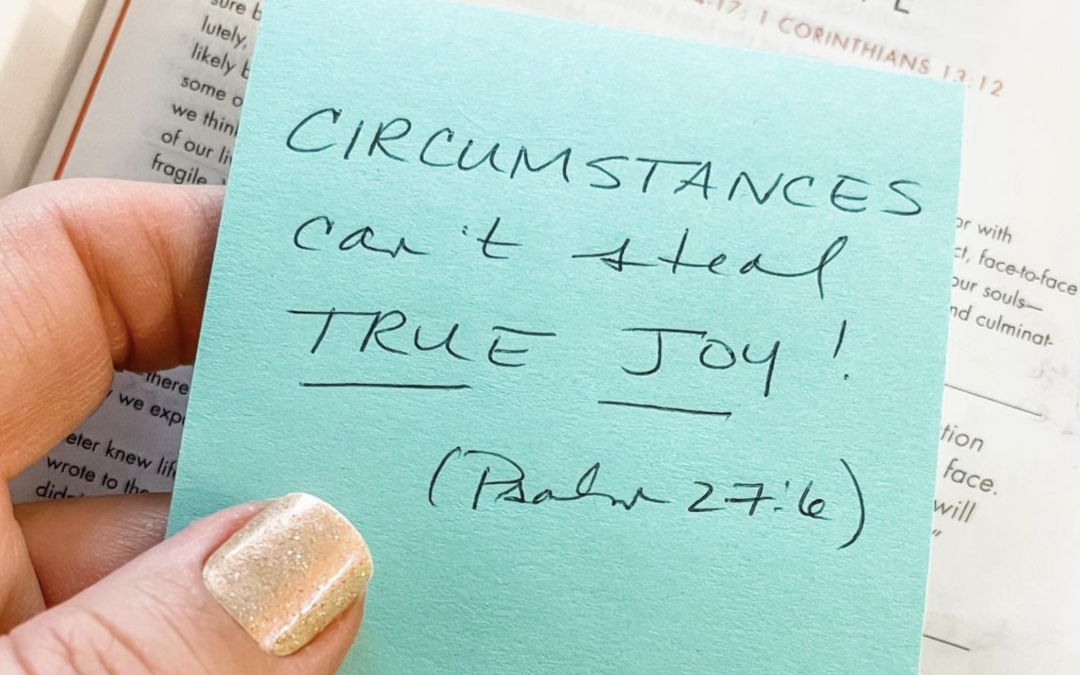 sure b
lutely,
likely b
some o
we thin
of our li
fragile
there
we exp
eter knew lif
wrote to the
4-17; 1 CORINTHIANS 13:12
CIRCUMSTANCES
can't steal
TRUE JOY!
(Psalm 27:6)
or with
ct, face-to-face
our souls—
nd culminat-
tion
face.
will
"